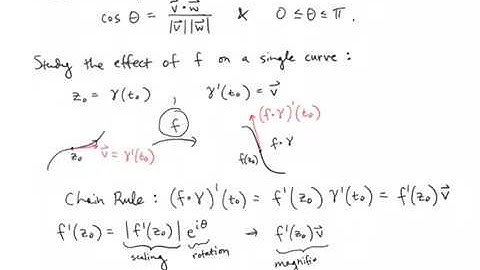 cos θ = v⃗ • w⃗ / |v⃗| |w⃗| & 0 ≤ θ ≤ π.
Study the effect of f on a single curve:
z₀ = γ(t₀) γ'(t₀) = v⃗
(f∘γ)'(t₀)
f
z₀ v⃗ = γ'(t₀) f(z₀) f∘γ
Chain Rule: (f∘γ)'(t₀) = f'(z₀) γ'(t₀) = f'(z₀) v⃗
f'(z₀) = |f'(z₀)| e^{iθ} → f'(z₀) v⃗
scaling rotation magnific